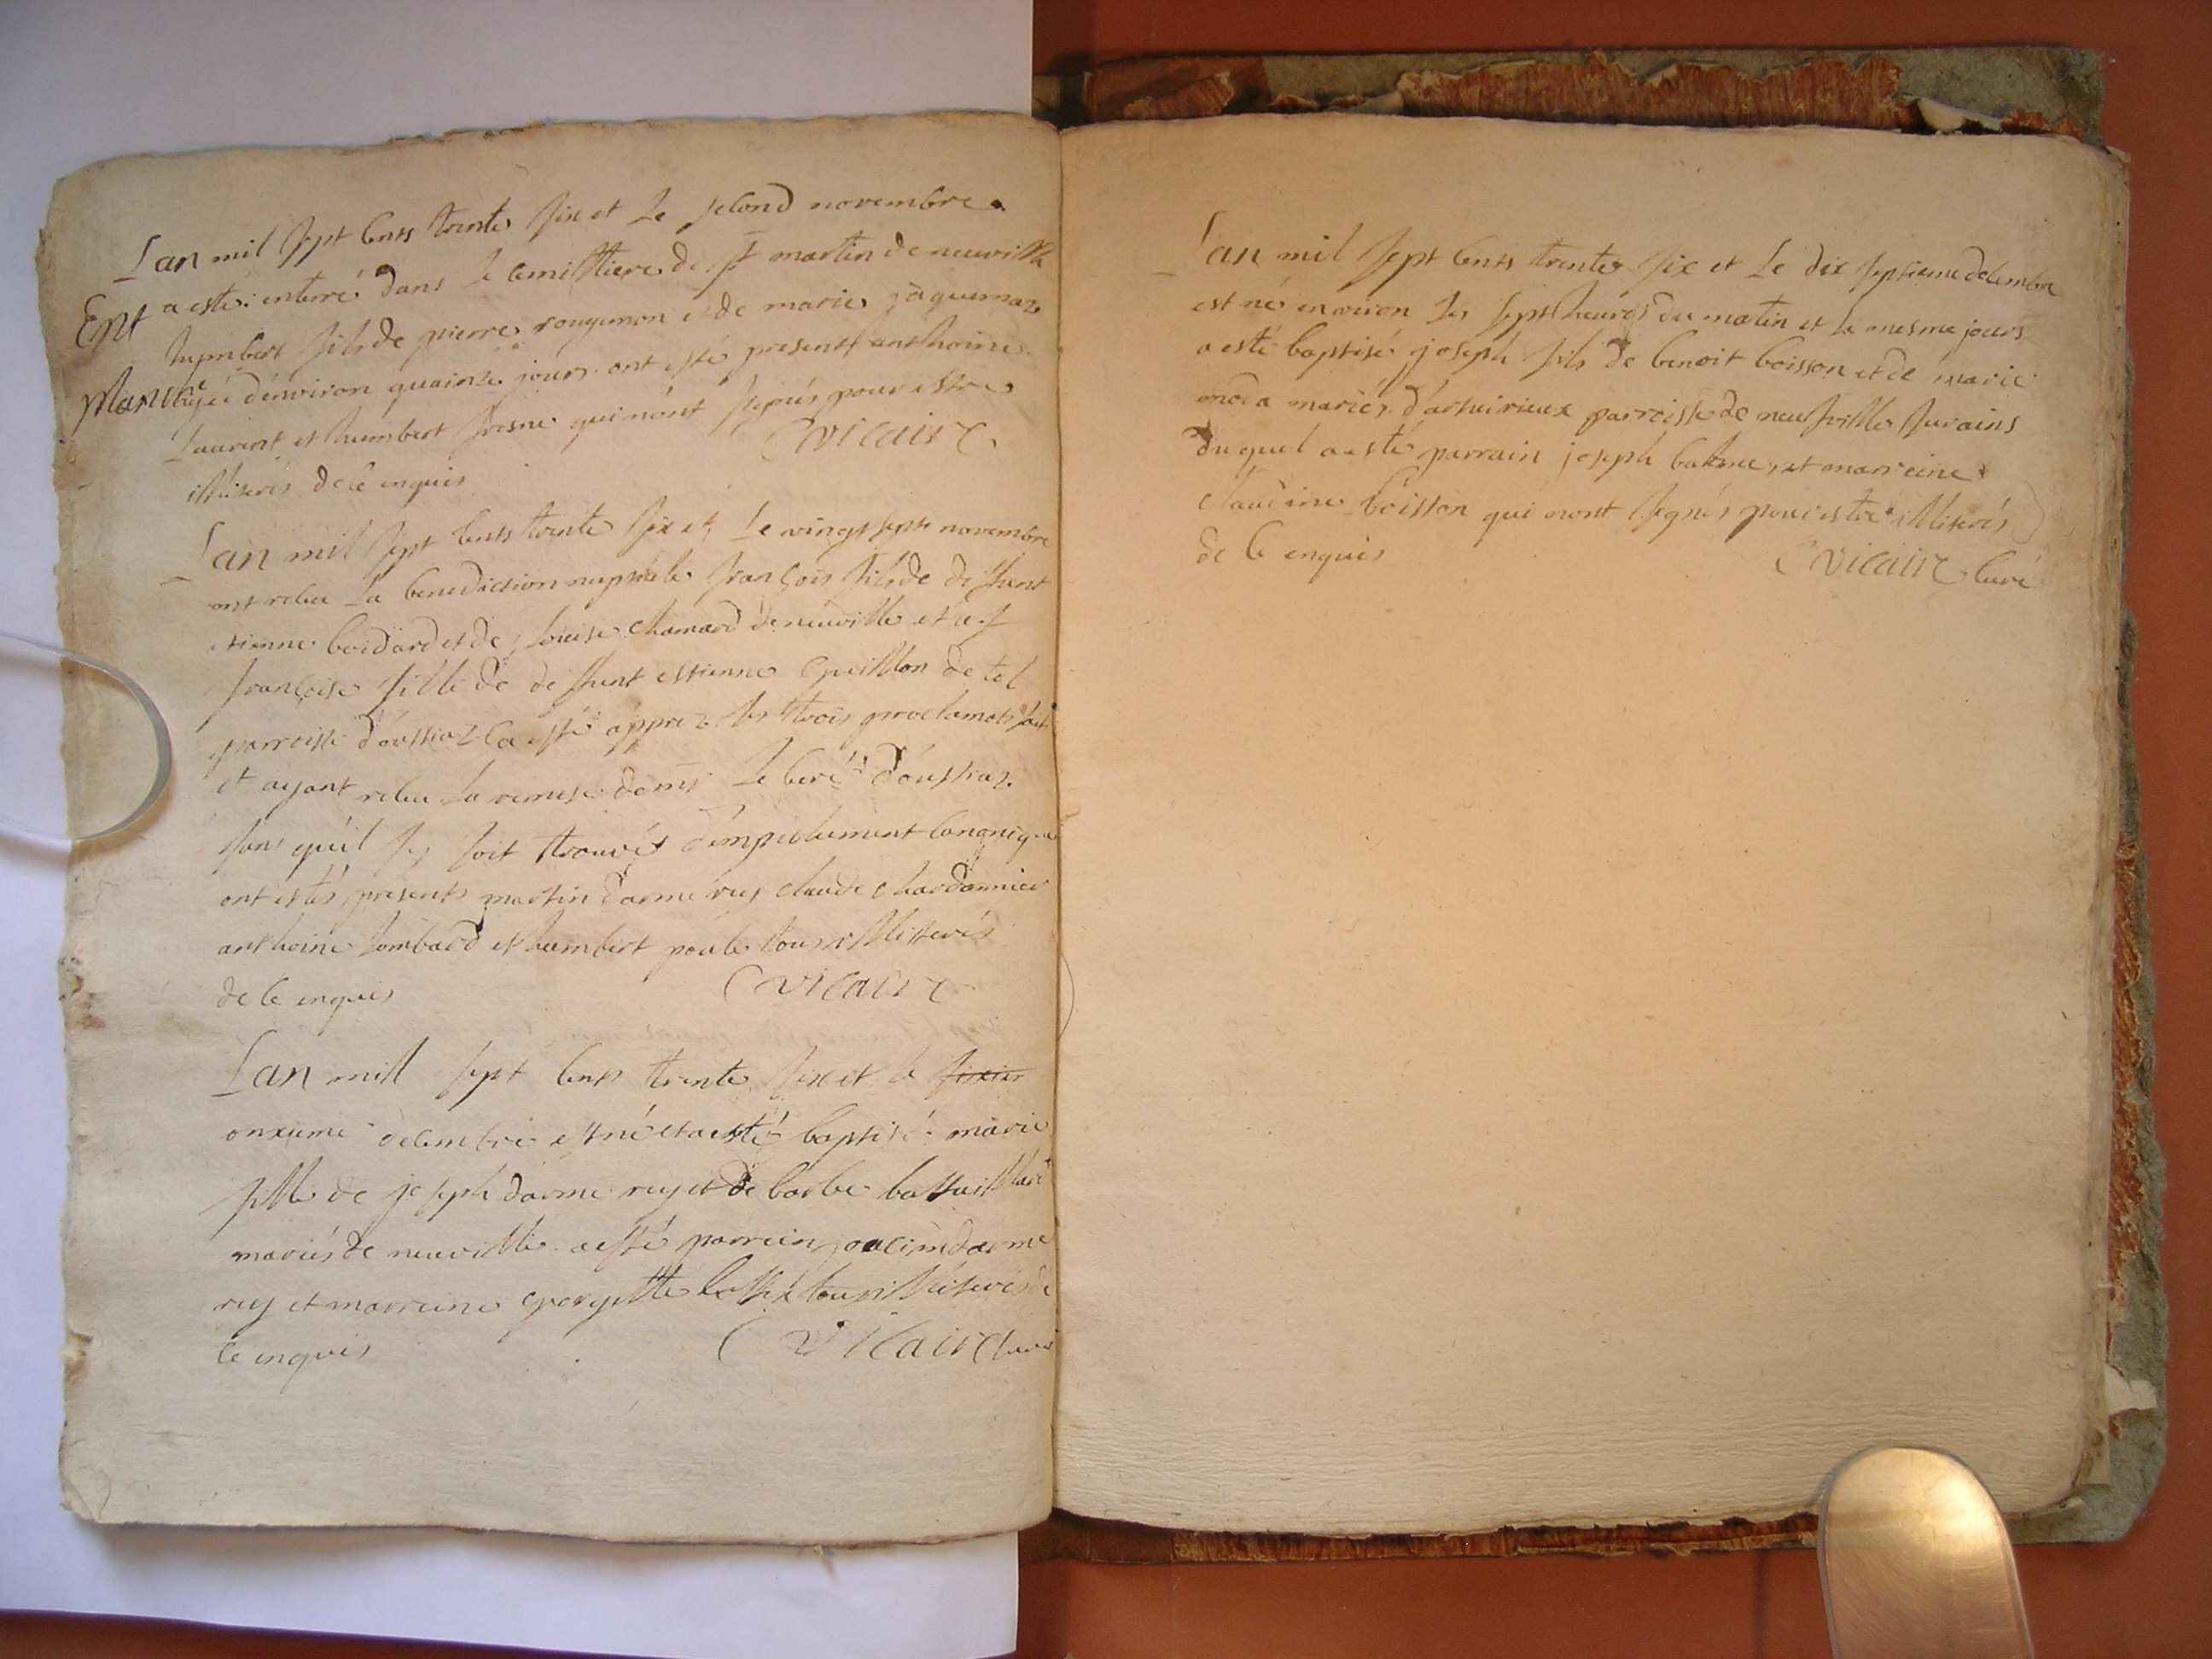 Lan mil sept cents trente six et le second novembre
a esté enterré dans le cemittiere de st martin de neuville
Ent
humbert fils de pierre rougemon et de marie jaquemaz
agéé denviron quainze jours ont esté presents anthoine
laurent et humbert fresne qui nont signés pour estre
illiterés de ce enquis Vicaire
Lan mil sept cents trente six et le vingt sept novembre
ont receu la benediction nuptiale françois fils de deffunt
etienne boidard et de louise chamard de neuville et
françoise fille de deffunt estienne guillon de
parroisse doussiaz ca esté apprez les trois proclamats
et ayant receu la remise de mr le curé doussiaz
sans quil sy soit trouvés dempechement canonique
ont estés presents martin darmerey claude chardonnier
anthoine lombard et humbert poule tous illiterés
de ce enquis Vicaire
Lan mill sept cents trente six et le
onzieme decembre est né et a esté baptisé marie
fille de joseph darme rey et de barbe battaillard
mariés de neuville a esté parrein joacim darme
rey et marreine georgette tous illiterés de
ce enquis Vicaire curé
Lan mil sept cents trente six et le dix septieme decembre
est né environ les sept heures du matin et le mesme jours
a esté baptisé joseph fils de benoit boisson et de marie
mariés parroisse de neufville sur ains
duquel a esté parrain joseph balme et marreine
claudine boisson qui nont signés pour estre illiterés
de ce enquis Vicaire curé